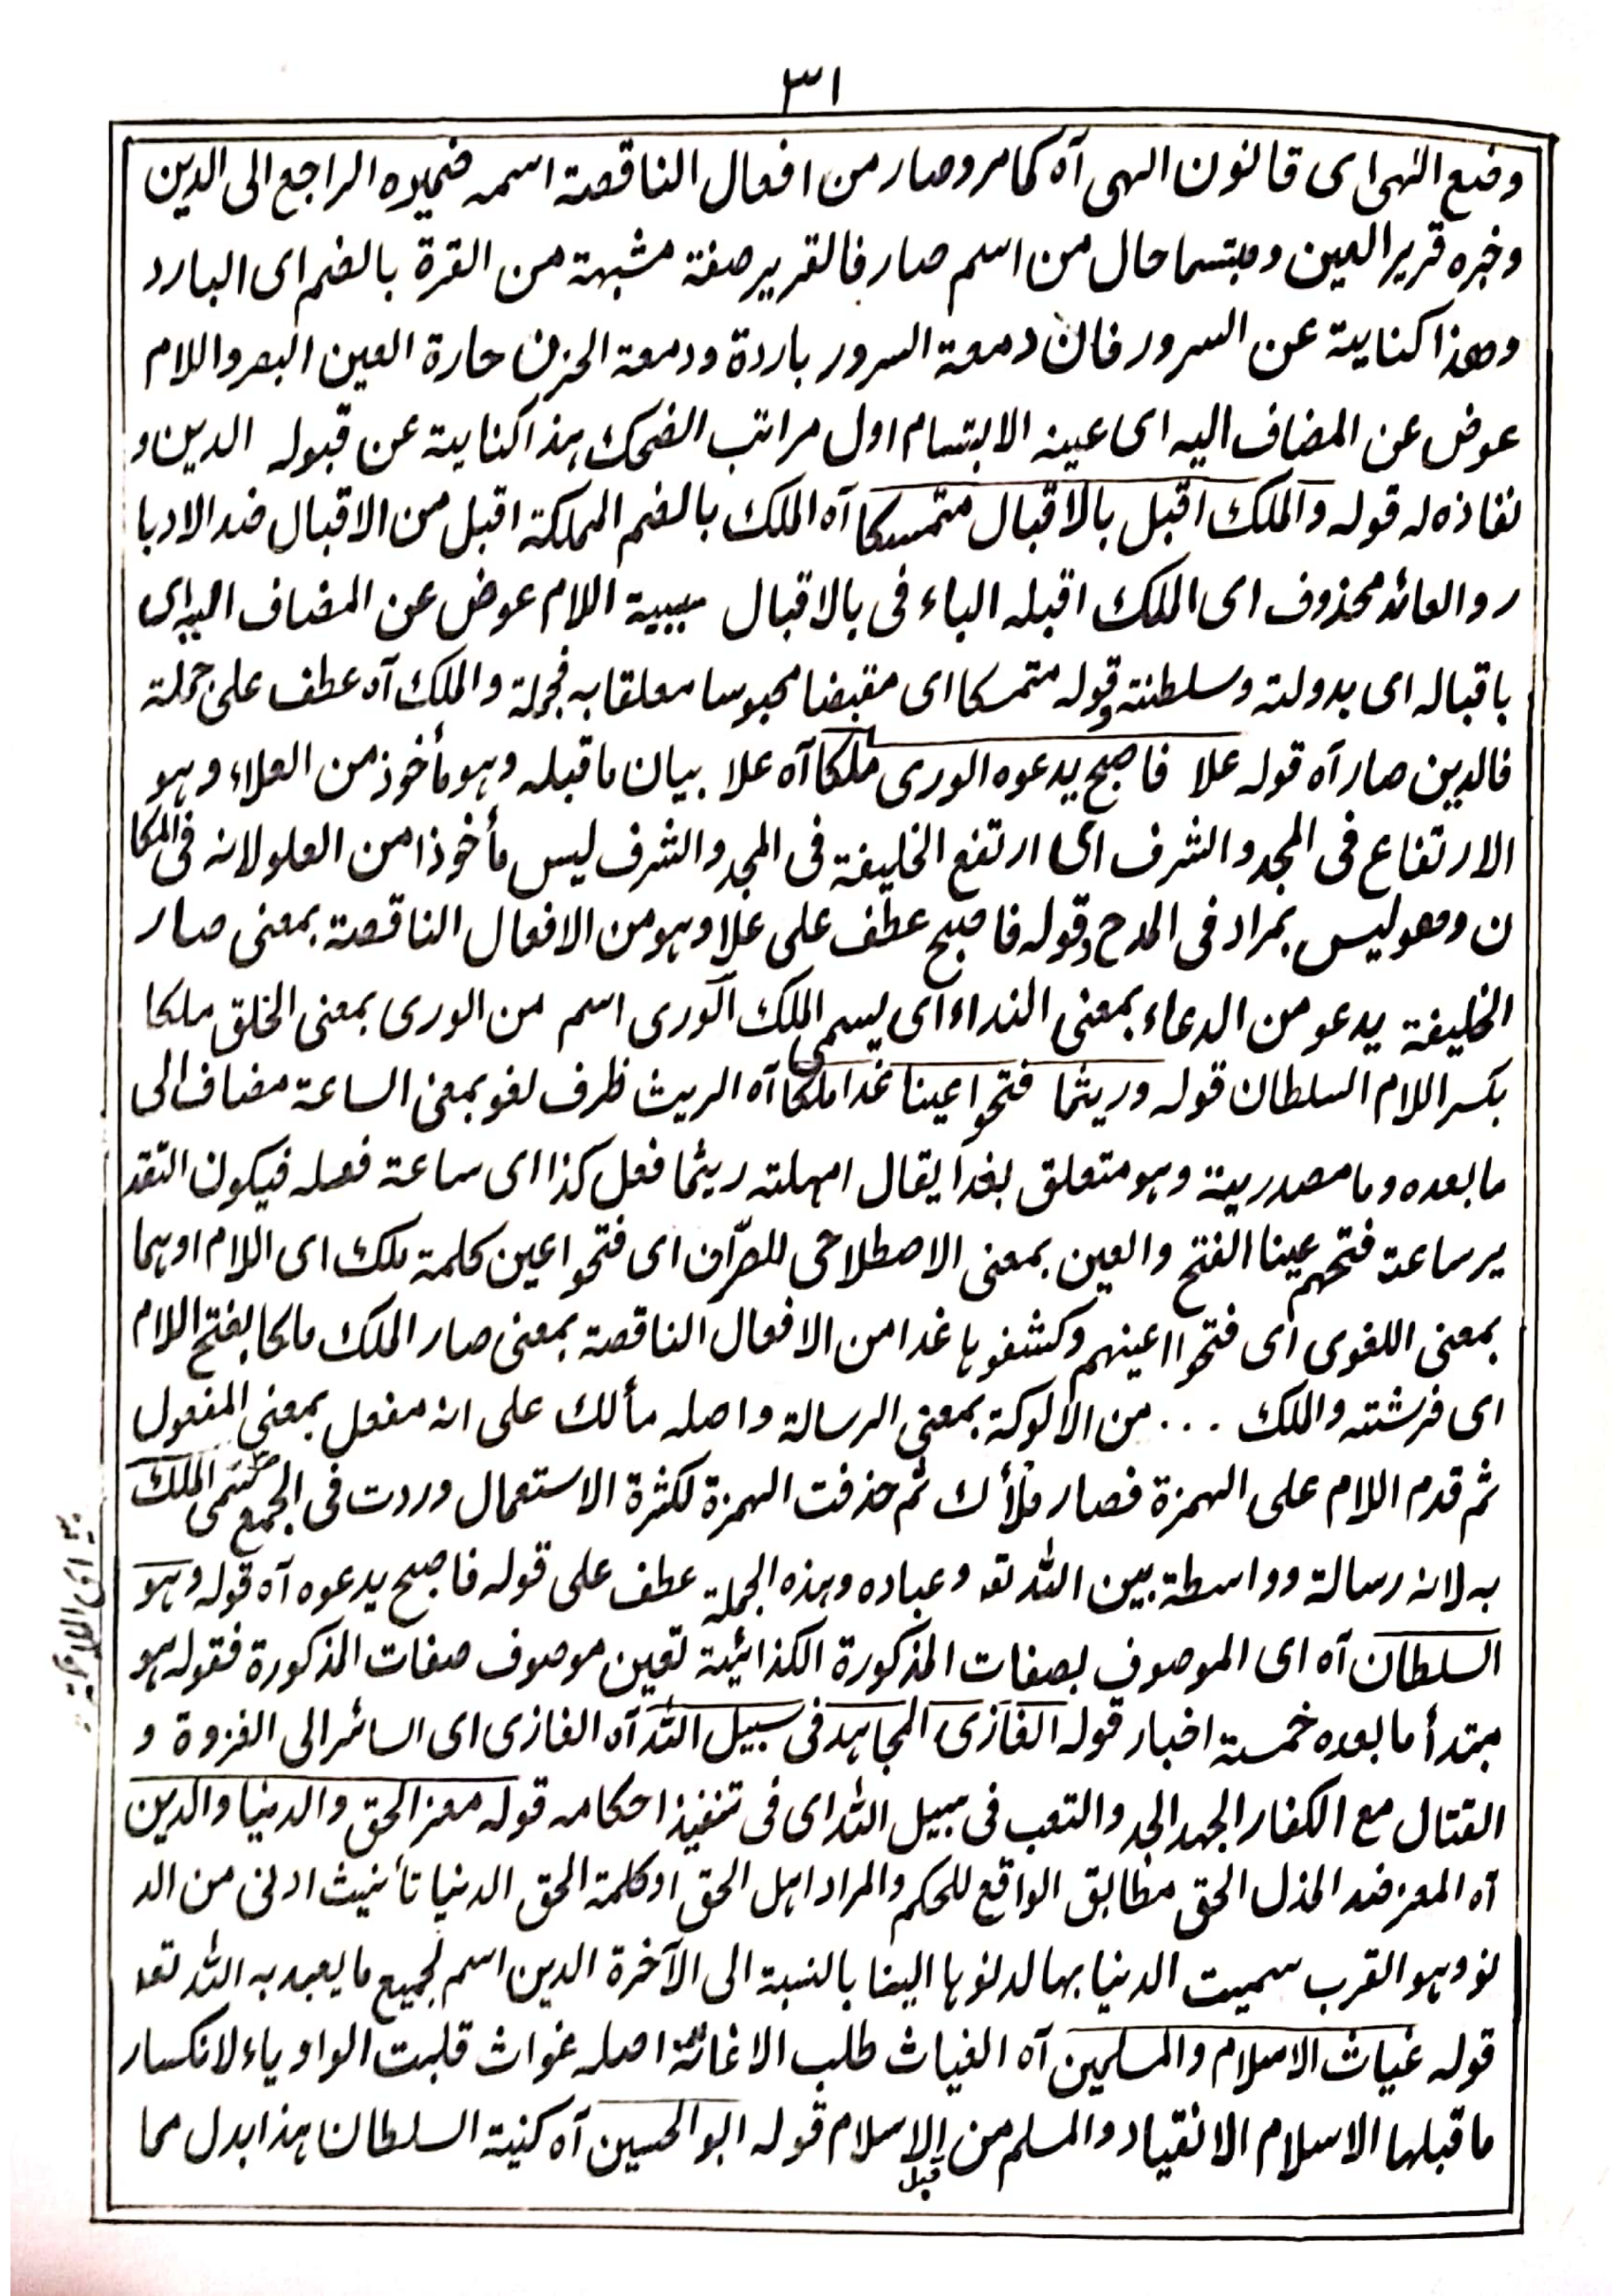 ٣١
وضع الٰهى اى قانون الٰهى آه كما مر وصار من افعال الناقصة اسمه ضميره الراجع الى الدين
وخبره قرير العين ومبتسما حال من اسم صار فالقرير صفة مشبهة من القرة بالضم اى البارد
وهذا كناية عن السرور فان دمعة السرور باردة ودمعة الحزن حارة العين البصر واللام
عوض عن المضاف اليه اى عينه الابتسام اول مراتب الضحك هذا كناية عن قبوله الدين و
نفاذه له قوله والملك اقبل بالاقبال متمسكا آه الملك بالضم المملكة اقبل من الاقبال ضد الادبا
ر والعائد محذوف اى الملك اقبله الباء فى بالاقبال سببية اللام عوض عن المضاف اليه اى
باقباله اى بدولته وسلطنته وقوله متمسكا اى مقبضا محبوسا معلقا به فجملة والملك آه عطف على جملة
فالدين صار آه قوله علا فاصبح يدعوه الورى ملكا آه علا بيان ماقبله وهو مأخوذ من العلاء وهو
الارتفاع فى المجد والشرف اى ارتفع الخليفة فى المجد والشرف ليس مأخوذا من العلو لانه فى المكا
ن وهو ليس بمراد فى المدح وقوله فاصبح عطف على علا وهو من الافعال الناقصة بمعنى صار
الخليفة يدعو من الدعاء بمعنى النداء اى يسمى الملك الورى اسم من الورى بمعنى الخلق ملكا
بكسر اللام السلطان قوله وريثما فتحوا عينا غدا ملكا آه الريث ظرف لغو بمعنى الساعة مضاف الى
مابعده وما مصدرية وهو متعلق بغدا يقال امهلته ريثما فعل كذا اى ساعة فعله فيكون التقد
ير ساعة فتحهم عينا الفتح والعين بمعنى الاصطلاحى للصرّاف اى فتحوا عين كلمة ملك اى اللام او هما
بمعنى اللغوى اى فتحوا اعينهم وكشفوها غدا من الافعال الناقصة بمعنى صار الملك ملكا بفتح اللام
اى فرشته والملك ... من الالوكة بمعنى الرسالة واصله مألك على انه مفعل بمعنى المفعول
ثم قدم اللام على الهمزة فصار ملأك ثم حذفت الهمزة لكثرة الاستعمال وردت فى الجمع سمى الملك
به لانه رسالة وواسطة بين الله تع وعباده وهذه الجملة عطف على قوله فاصبح يدعوه آه قوله وهو
السلطان آه اى الموصوف بصفات المذكورة الكذائية تعين موصوف صفات المذكورة فقوله هو
مبتدأ مابعده خمسة اخبار قوله الغازى المجاهد فى سبيل الله آه الغازى اى السائر الى الغزوة و
القتال مع الكفار الجهد الجد والتعب فى سبيل الله اى فى تنفيذ احكامه قوله معز الحق والدنيا والدين
آه المعز ضد المذل الحق مطابق الواقع للحكم والمراد اهل الحق او كلمة الحق الدنيا تأنيث ادنى من الد
نو وهو القرب سميت الدنيا بها لدنوها الينا بالنسبة الى الآخرة الدين اسم لجميع ما يعبد به الله تع
قوله غياث الاسلام والمسلمين آه الغياث طلب الاغاثة اصله غواث قلبت الواو ياء لانكسار
ماقبلها الاسلام الانقياد والمسلم من الاسلام قوله ابو الحسين آه كنية السلطان هذا بدل مما
قبله